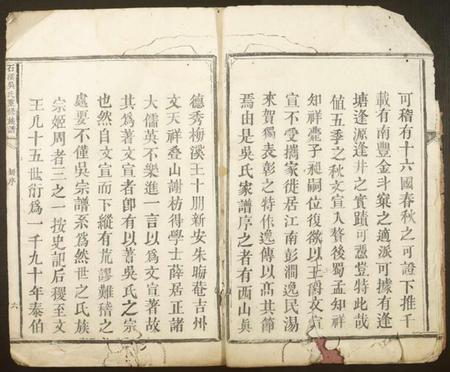 可稽有十六國春秋之可證下推千
載有南豐金斗寀之適派可據有逢
塘逢源逢井之實蹟可憑豈特此哉
值五季之秋文宣入贅後蜀孟知祥
知祥薨子昶嗣位後欲以王爵文宣
宣不受攜家徙居江南彭澗逸民湯
來賀獨表彰之特作逸傳以高其節
焉由是吳氏家譜序之者有西山眞
德秀梅溪王十朋新安朱晦菴吉州
文天祥叠山謝枋得學士薛居正諸
大儒英不樂進一言以爲文宣著故
其爲著文宣者卽有以著吳氏之宗
也然自文宣而下縱有荒謬難稽之
處要不僅吳宗譜系爲然世之氏族
宗姬周者三之一按史記后稷至文
王凡十五世衍爲一千九十年泰伯
石溪吳氏重修族譜
序
六